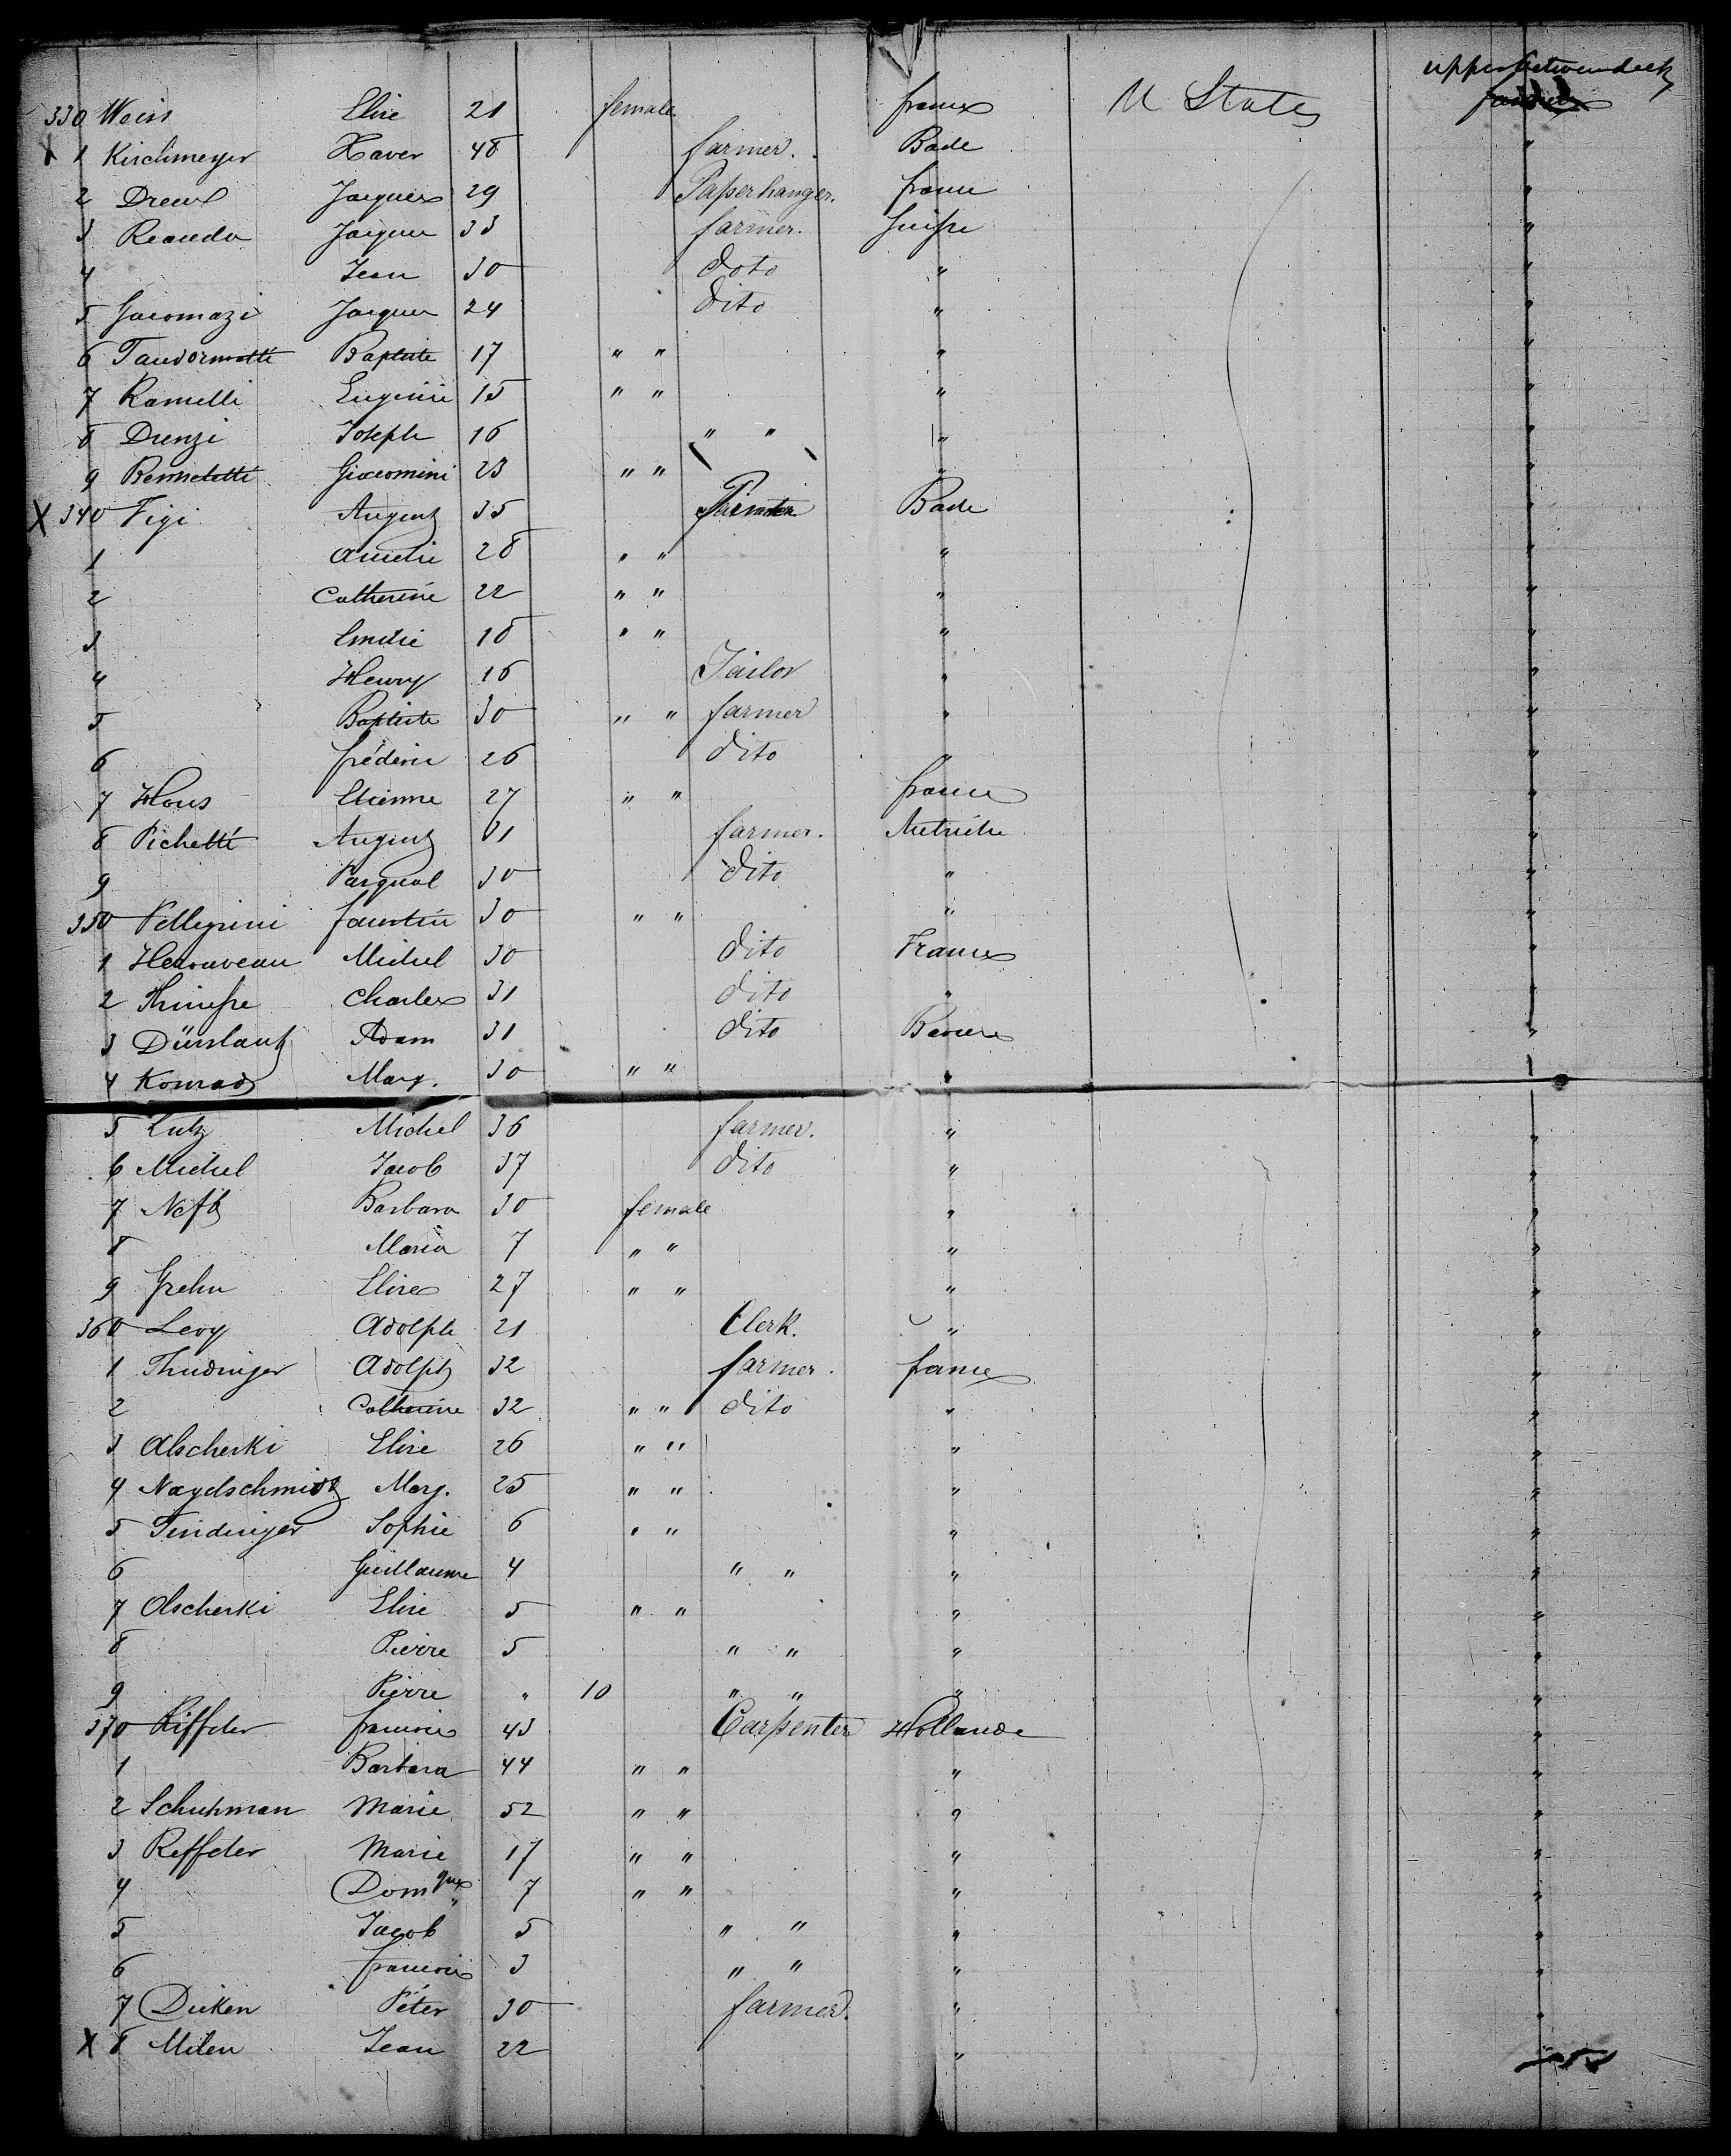 upper betweendeck
330 Weiss Elise 21 female france U States
X 1 Kirchmeyer Xaver 48 farmer. Bade "
2 Dreux Jacques 29 Paperhanger. france "
3 Jacques 33 farmer. Suisse "
4 Jean 30 doto " "
5 Giacomazi Jacques 24 dito " "
6 Baptiste 17 " " " "
7 Ramelli Eugenie 15 " " " "
8 Drenzi Joseph 16 " " " "
9 Giacomini 23 " " " "
X 340 Figi August 35 Bade "
1 Amelie 28 " " " "
2 Catherine 22 " " " "
3 Emilie 18 " " " "
4 Henry 16 Tailor " "
5 Baptiste 30 " " farmer " "
6 fréderic 26 dito " "
7 Hous Etienne 27 " " france "
8 Pichetti August 31 farmer. Autriche "
9 Pasqual 30 dito " "
350 Pellegrini faustin 30 " " " "
1 Michel 30 dito France "
2 Charles 31 dito " "
3 Adam 31 dito Baviere "
4 Konrad Marg. 30 " " "
5 Lutz Michel 36 farmer. " "
6 Michel Jacob 37 dito " "
7 Barbara 30 female " "
8 Maria 7 " " " "
9 Grehn Elise 27 " " " "
360 Levy Adolph 21 Clerk. " "
1 Thudinger Adolph 32 farmer. france "
2 Catherine 32 " " dito " "
3 Alscherki Elise 26 " " " "
4 Nagelschmidt Marg. 25 " " " "
5 Tindinger Sophie 6 " " " "
6 Guillaume 4 " " " "
7 Olscherki Elise 5 " " " "
8 Pierre 5 " " " "
9 Pierre " 10 " " " "
370 Riffeler francois 43 Carpenter Hollande "
1 Barbara 44 " " " "
2 Schuhman Marie 52 " " " "
3 Reffeler Marie 17 " " " "
4 Domque 7 " " " "
5 Jacob 5 " " " "
6 francois 3 " " " "
7 Dicken Péter 30 farmer. " "
X 8 Milen Jean 22 "